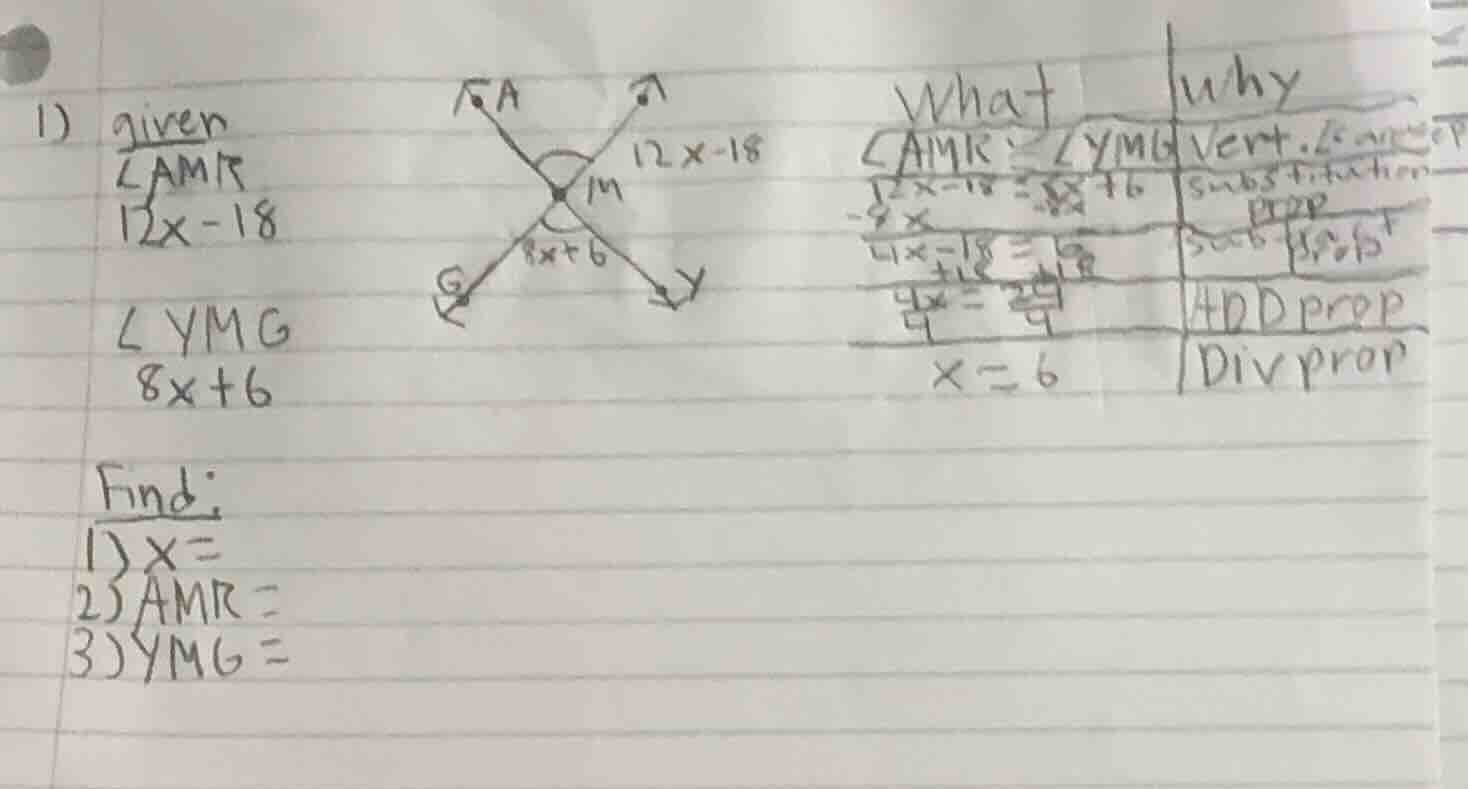 1) given
∠AMR
12x-18
∠YMG
8x+6
Find:
1) x=
2) AMR=
3) YMG=
A
12x-18
M
8x+6
G
Y
What | Why
∠AMR = ∠YMG | Vert.
12x-18 = 8x+6 | substitution prop
-8x -8x
4x-18 = 6
+18 +18
4x = 24 | ADD prop
4 4
x=6 | Div prop